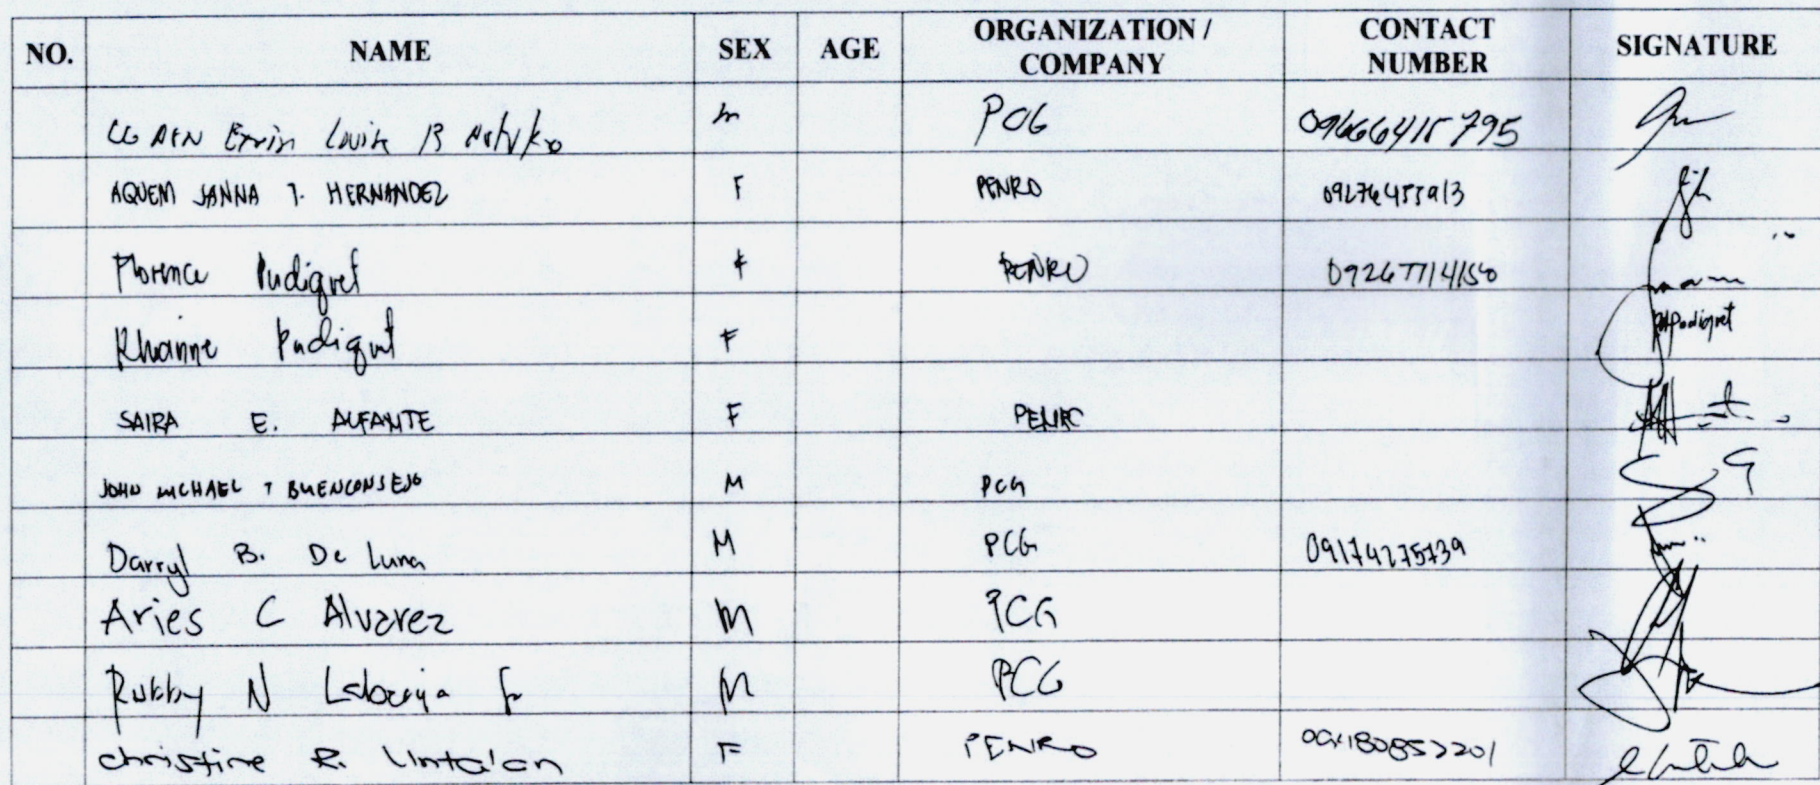 NO. NAME SEX AGE ORGANIZATION / COMPANY CONTACT NUMBER SIGNATURE
Ervin Louis B M PCG
AQUEM JANNA T. HERNANDEZ F PENRO
Florence Pudiquet F PENRO 09267714150
Rhainne Pudiquet F Pudiquet
SAIRA E. ALFANTE F PENRO
JOHN MICHAEL T BUENCONSEJO M PCG
Darryl B. De Luna M PCG 09174275739
Aries C Alvarez M PCG
Rubby N M PCG
christine R. Lintalan F PENRO